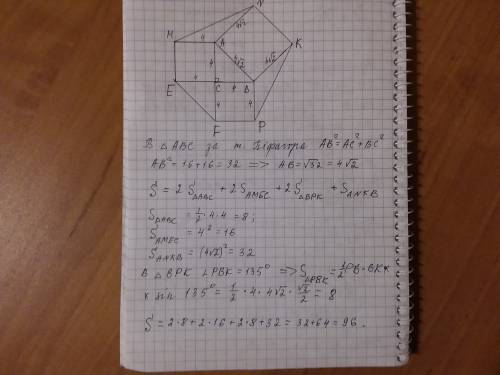 N
M 4 A 4√2 K
4 4√2 4√2
E 4 C 4 B
4 4
F P
В △ABC за т. Піфагора AB² = AC² + BC²
AB² = 16 + 16 = 32 => AB = √32 = 4√2
S = 2 S△ABC + 2 SAMEC + 2 S△BPK + SANKB
S△ABC = 1/2 · 4 · 4 = 8;
SAMEC = 4² = 16
SANKB = (4√2)² = 32
В △BPK ∠PBK = 135° => S△PBK = 1/2 PB · BK ×
× sin 135° = 1/2 · 4 · 4√2 · √2/2 = 8
S = 2·8 + 2·16 + 2·8 + 32 = 32 + 64 = 96.